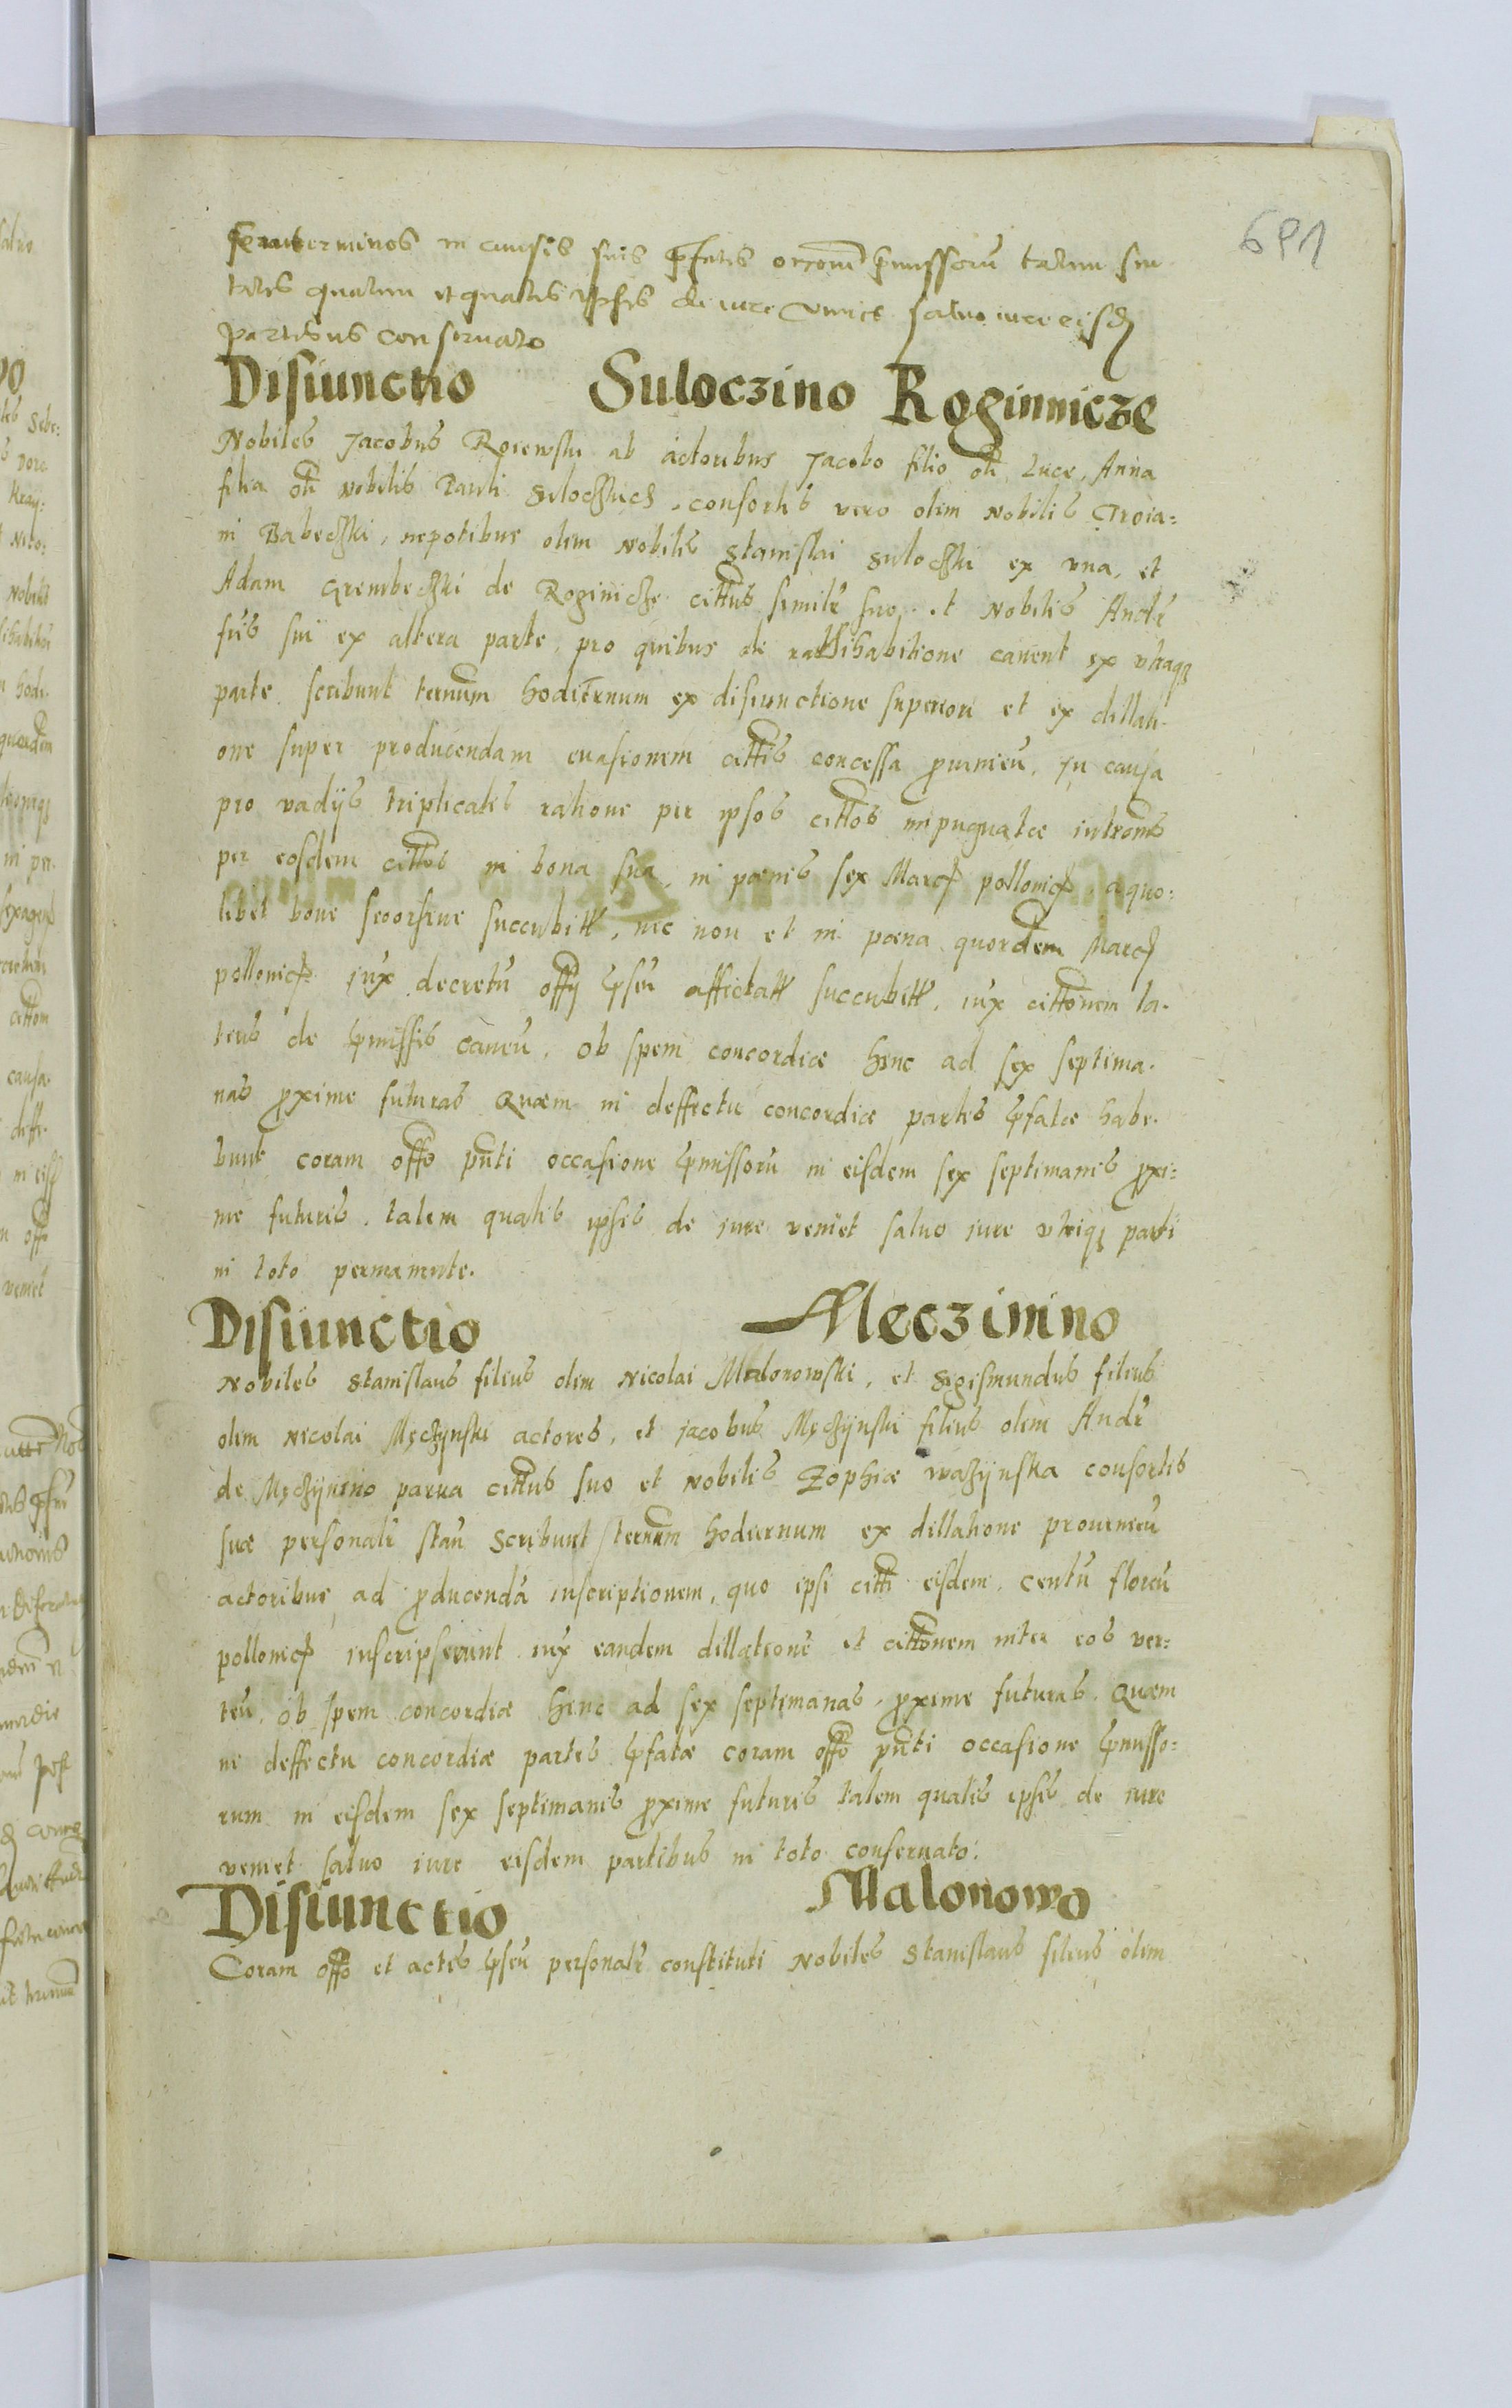 691
terminos in causis suis pfatis occone pmissoru talem seu
tales qualem et quales ipsis de iure venict salvo iure eisd
partibus conseruato
Disiunctio Suloczino Roginnicze
Nobiles Jacobus Rorewski ab actoribus Jacobo filio oli Luce, Anna
filia oli Nobilis Pauli Suloczkich, consortis vero olim Nobilis Troia=
ni Babeczki, nepotibus olim Nobilis Stanislai Suloczki ex vna, et
Adam Grembeczki de Roginicze cittus similr suo et Nobilis Andr
fris sui ex altera parte, pro quibus de rathihabitione cauent ex vtraqz
parte scribunt ternum hodiernum ex disiunctione superiori et ex dillati-
one super producendam euasionem cittis concessa prouenieu, In causa
pro vadijs triplicatis ratione per ipsos cittos impugnatae intromis
per eosdem cittos in bona sua, in poenis sex Marc pollonic, a quo=
libet bone seoorsiue succubitt, nec non et in poena quordem Marc
pollonic iux decretu offy pseu affectatt succubitt, iux cittonem la-
teus de pmissis caueu, ob spem concordiae hinc ad sex septima-
nas pxime futuras Quem in deffectu concordiae partes pfatae habe-
bunt coram offo pnti occasione pmissoru in eisdem sex septimanis pxi=
me futuris, talem qualis ipsis de iure veniet saluo iure vtriqz parti
in toto permanente.
Disiunctio Meczinino
Nobiles Stanislaus filius olim Nicolai Malonowski, et Sigismundus filius
olim Nicolai Męczynski actores, et Jacobus Męczynski filius olim Andr
de Męczynino parua cittus suo et Nobilis Zophiae wazynska consortis
suae personalr stan Scribunt ternum hodiernum ex dillatione prouenieu
actoribus ad pducenda inscriptionem, quo ipsi citti eisdem, centu floreu
pollonic inscripserunt iux eandem dillatione et cittonem inter eos ver=
teu, ob spem concordiae hinc ad sex septimanas, pxime futuras, Quem
in deffectu concordiae partes pfatae coram offo pnti occasione pmisso=
rum in eisdem sex septimanis pxime futuris talem qualis ipsis de iure
veniet saluo iure eisdem partibus in toto conseruato.
Disiunctio Malonowo
Coram offo et actis pseu personalr constituti Nobiles Stanislaus filius olim